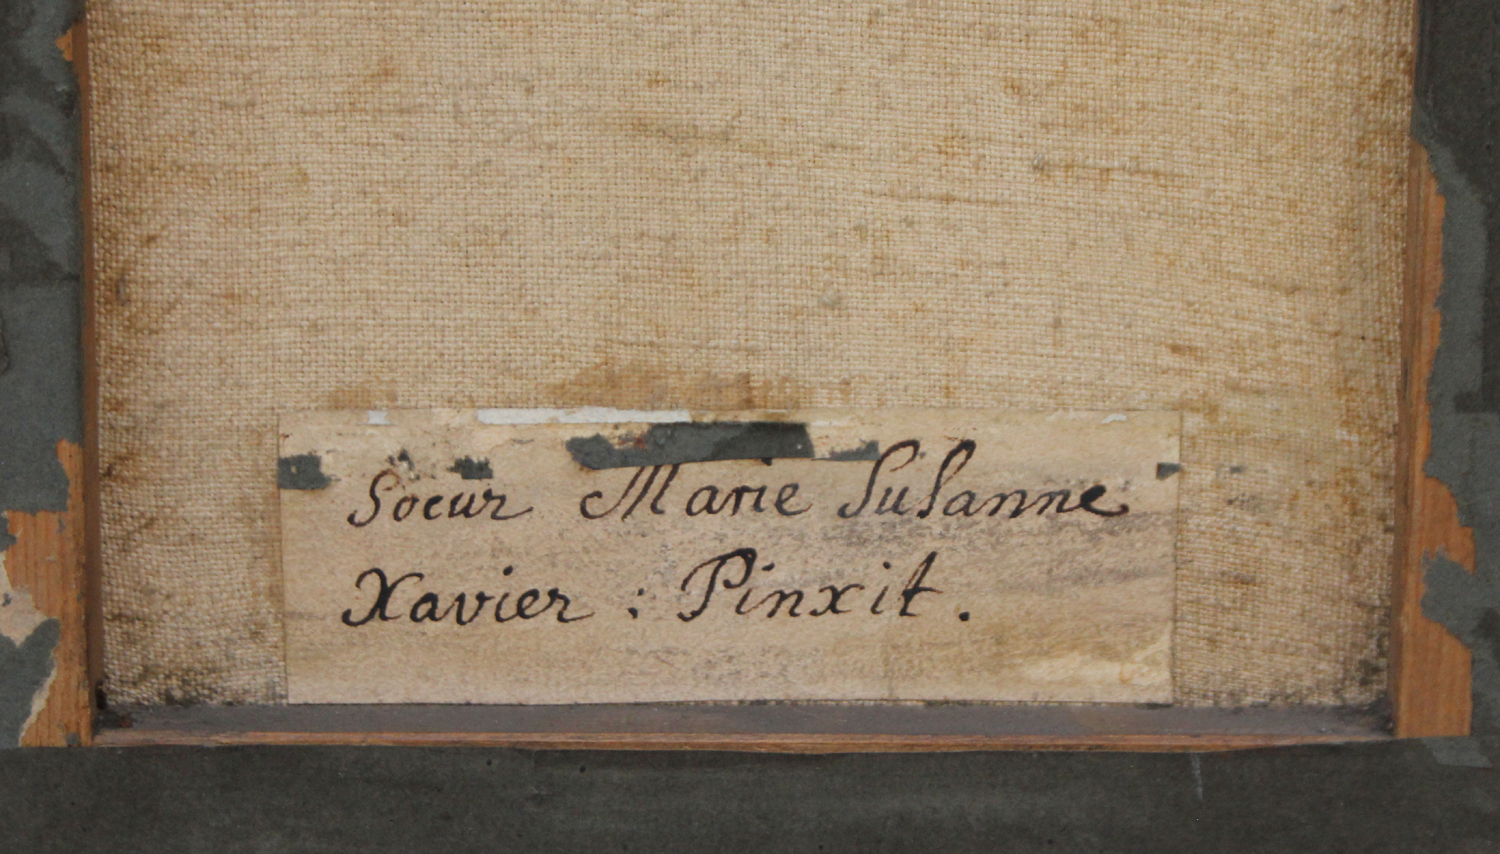 Soeur Marie Susanne
Xavier : Pinxit.